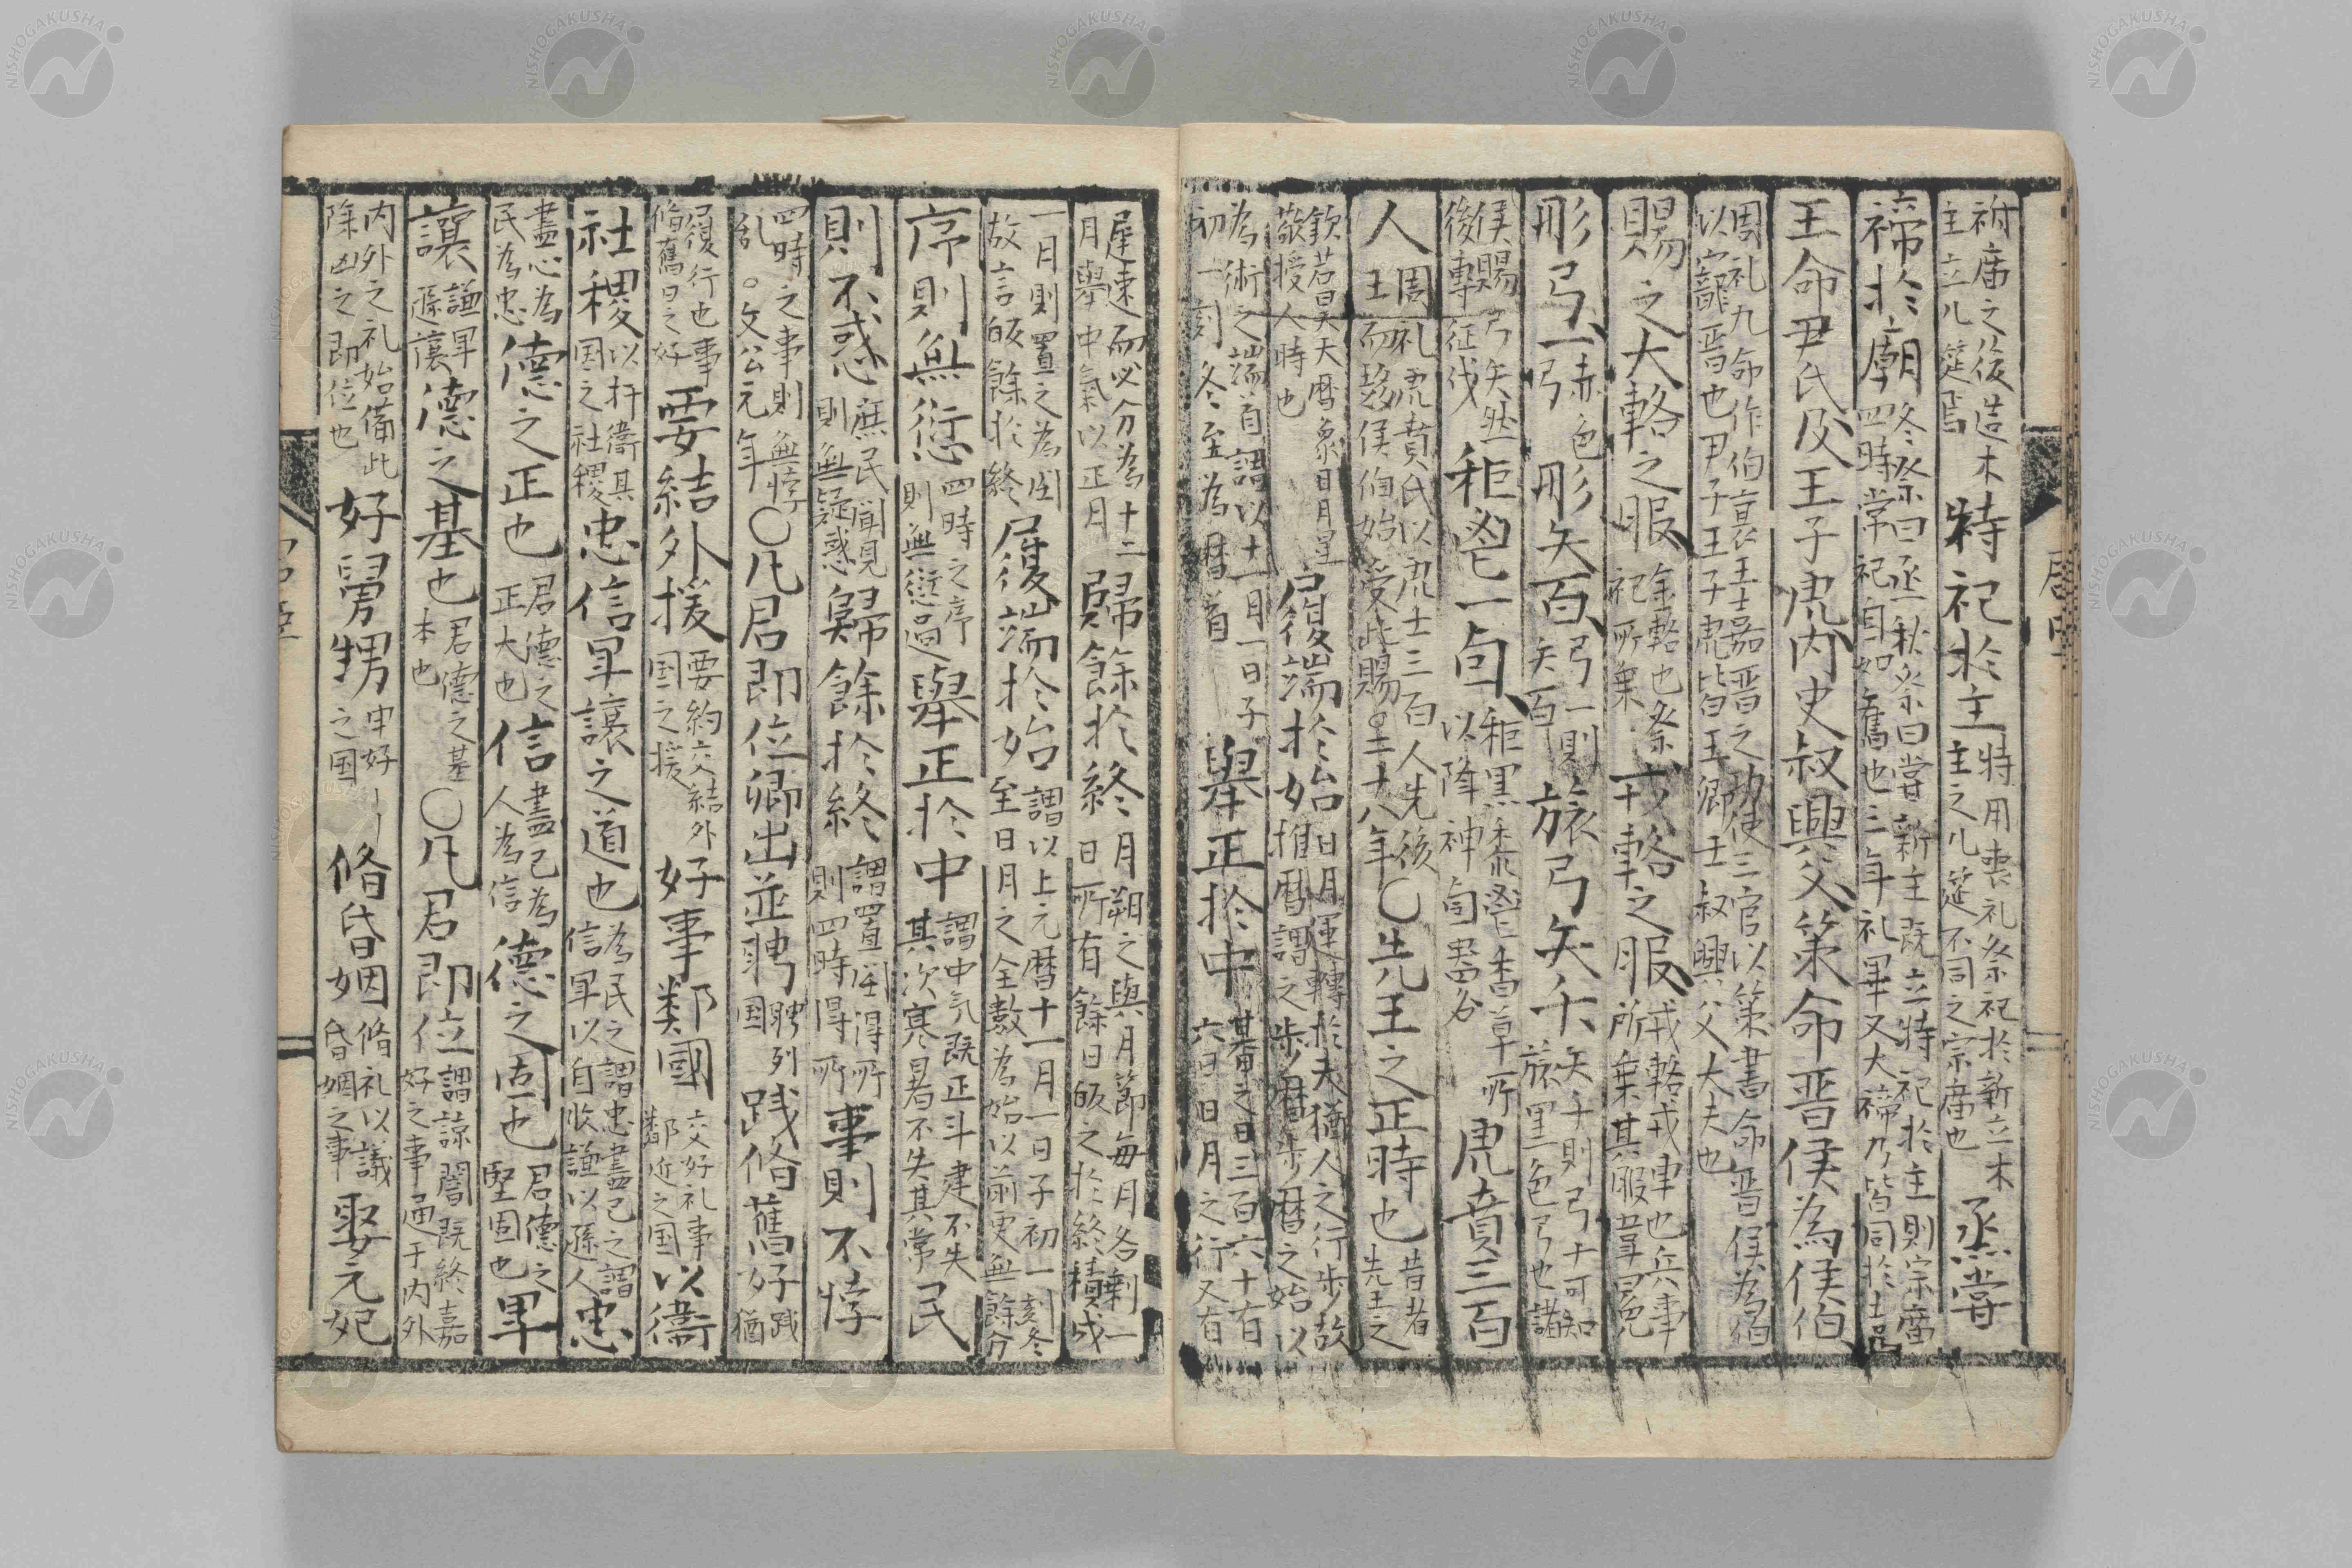 祔席之後造木
主立几筵焉
特祀於主
特用喪礼祭祀於新立木
主主之几筵不同之宗庿也
烝甞
禘於廟
冬祭曰烝秋祭曰嘗新主既立特祀於主則宗庿
四時常祀自如舊也三年礼畢又大禘乃皆同於吉
王命尹氏及王子虎内史叔興父策命晋侯為侯伯
周礼九命作伯襄王嘉晋之功使三官以策書命晋侯為伯
以寵晋也尹子王子虎皆王卿士叔興父大夫也
賜之大輅之服
金輅也祭
祀所乗
戎輅之服
戎輅戎車也兵事
所乗其服韋冕
彤弓一
赤色
弓
彤矢百
弓一則
矢百
旅弓矢千
矢千則弓十可知
旅黒色弓也諸
侯賜弓矢然
後專征伐
秬鬯一卣
秬黒黍鬯香草所
以降神卣器名
虎賁三百
人
周礼虎賁氏以虎士三百人先後
王而趍侯伯始受此賜○二十八年
○先王之正時也
昔者
先王之
欽若昊天暦象日月星
敬授人時也
履端於始
日月運轉於天猶人之行步故
推暦謂之步暦步暦之始以
為術之端首謂以十一月一日子
初一刻冬至為暦首
舉正於中
朞之日三百六十有
六日日月之行又有
遅速而必分為十二
月舉中氣以正月
歸餘於終
月朔之與月節毎月各剰一
日所有餘日皈之於終積成
一月則置之為閏
故言皈餘於終
履端於始
謂以上元暦十一月一日子初一刻冬
至日月之全數為始以前更無餘分
序則無愆
四時之序
則無愆過
舉正於中
謂中氣既正斗建不失
其次寒暑不失其常
民
則不惑
庶民聞見
則無疑惑
歸餘於終
謂置閏得所
則四時得所
事則不悖
四時之事則無悖
乱○文公元年
○凡君即位卿出並聘
聘列
国
践脩舊好
践
猶
履行也事
脩舊日之好
要結外援
要約交結外
国之援
好事鄰國
交好礼事
鄰近之国
以衞
社稷
以扞衞其
国之社稷
忠信卑讓之道也
為民之謂忠盡己之謂
信卑以自收謙以遜人
忠
盡心為
民為忠
德之正也
君德之
正大也
信
盡己為
人為信
德之固也
君德之
堅固也
卑
讓
謙卑
遜讓
德之基也
君德之基
本也
○凡君即位
謂諒闇既終嘉
好之事通于内外
内外之礼始備此
除凶之即位也
好舅甥
申好
之国
脩昏姻
脩礼以議
昏姻之事
娶元妃